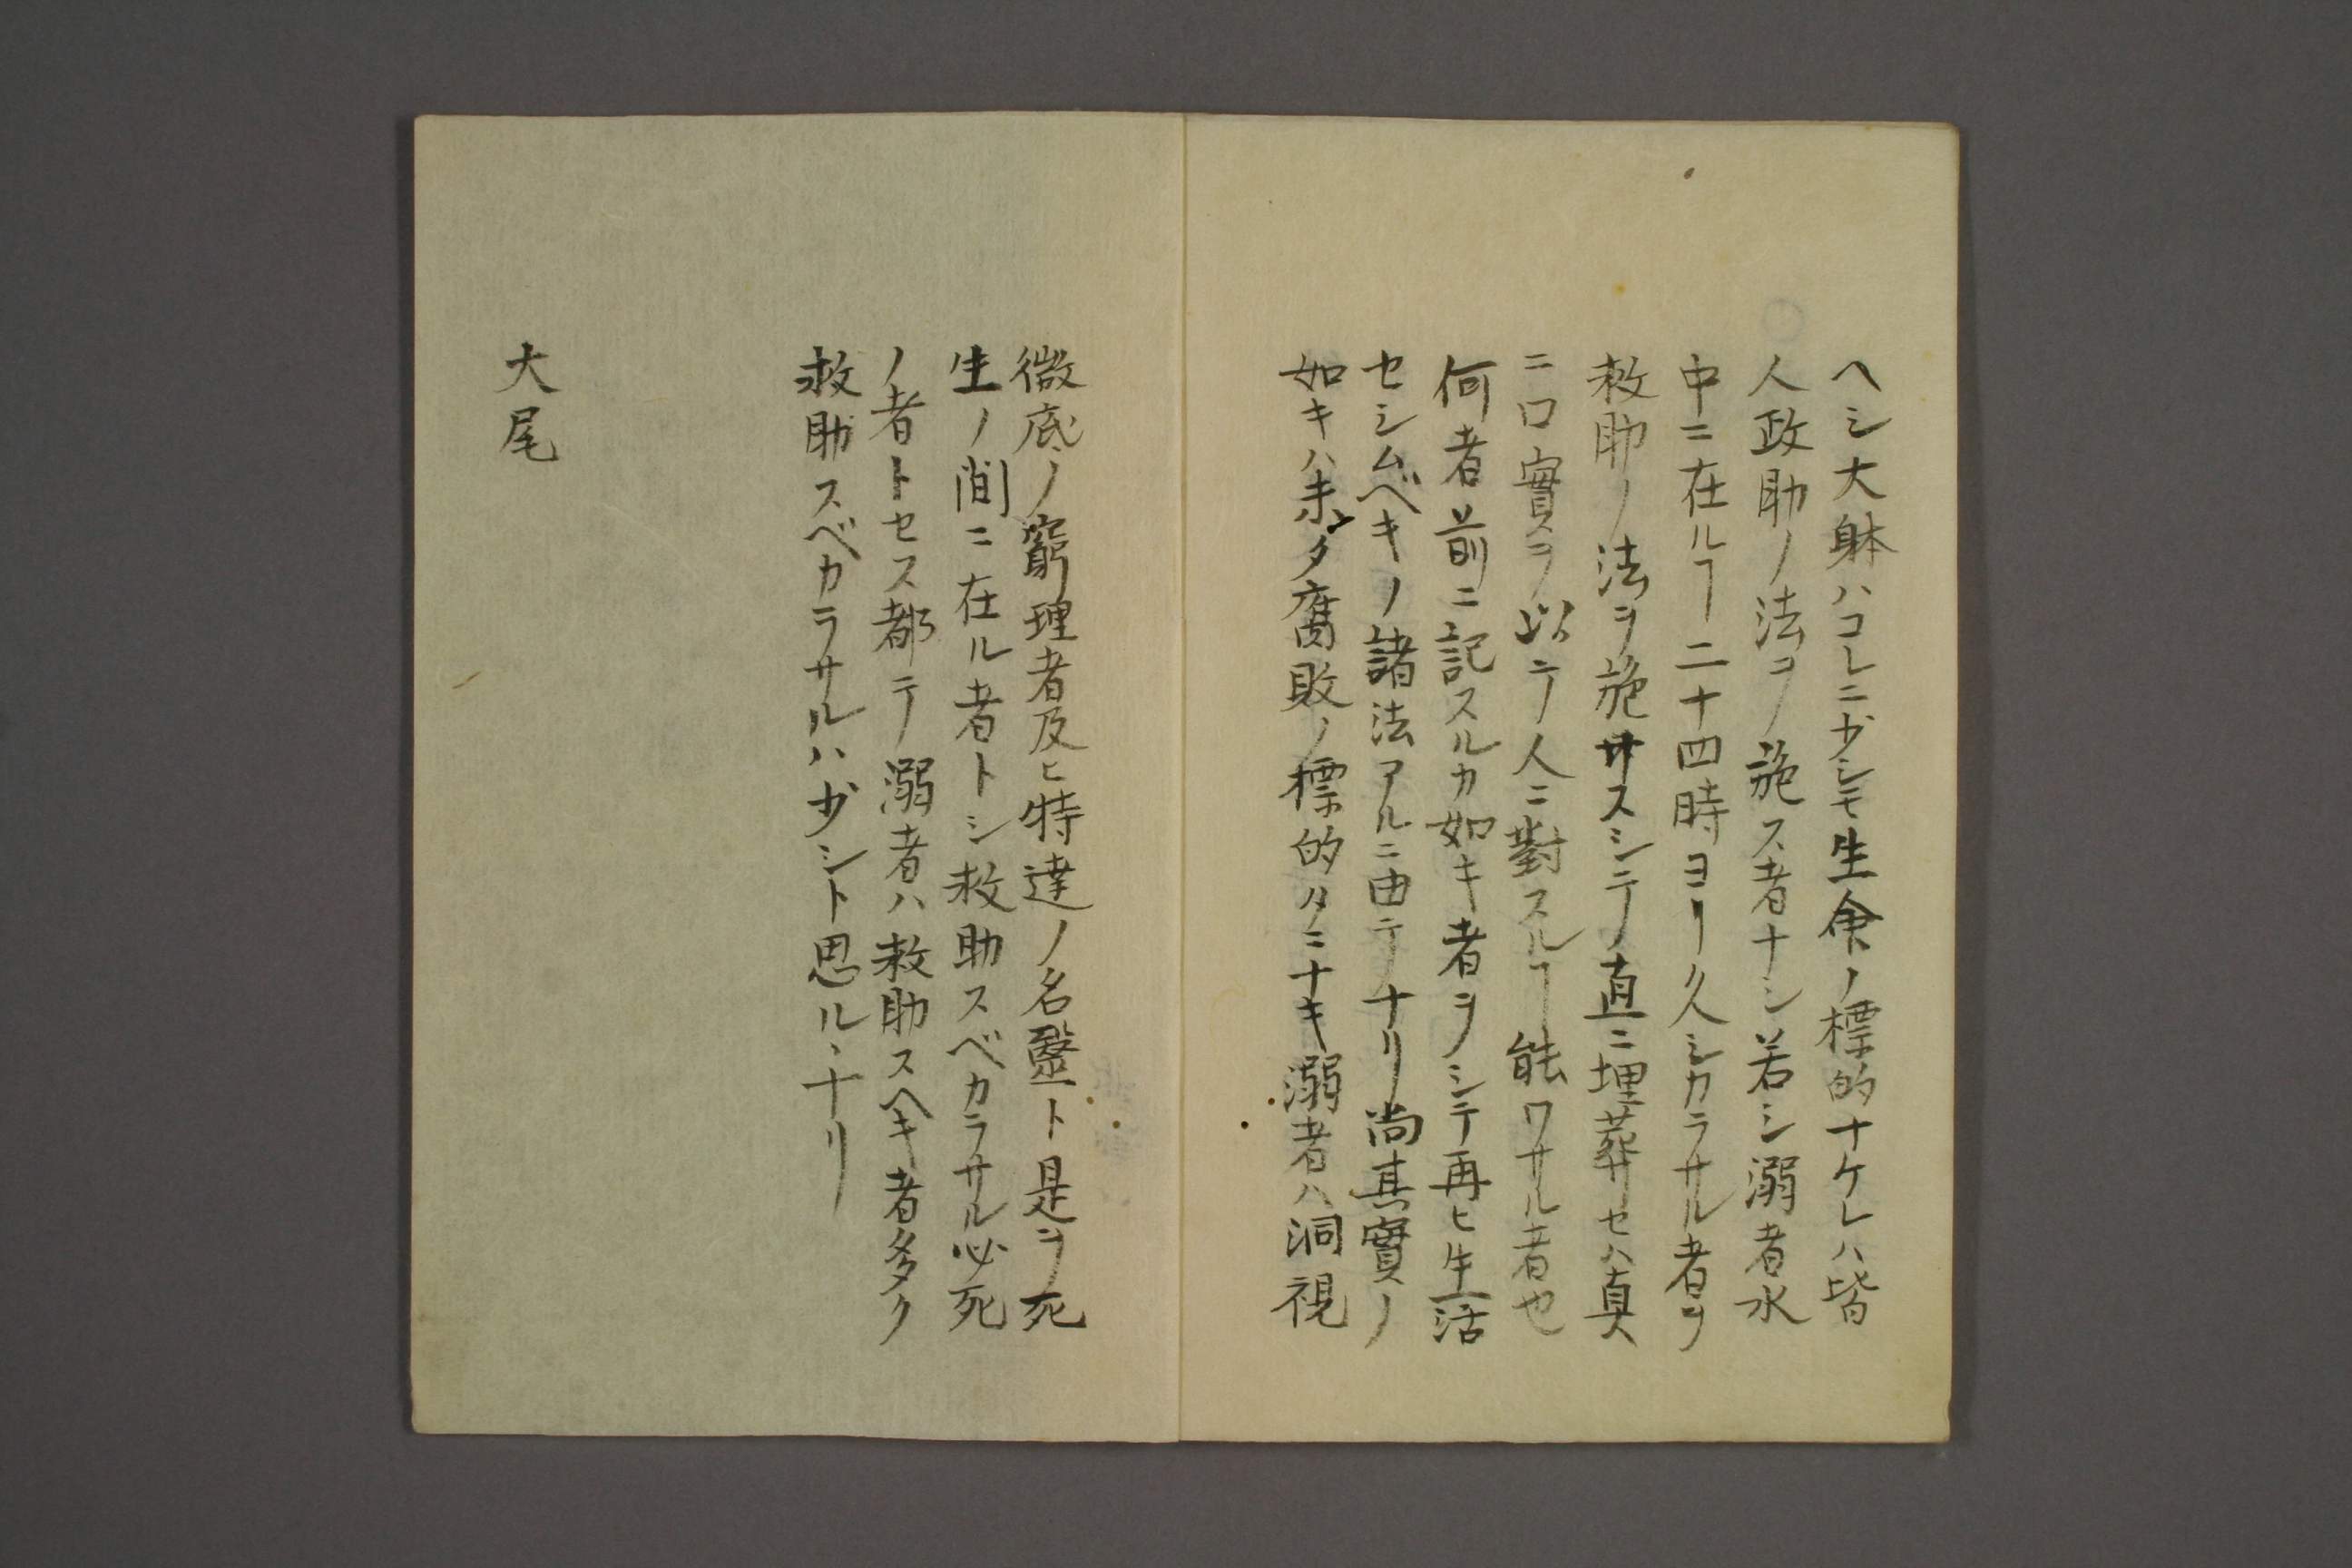 ヘシ大躰ハコレニ少シモ生命ノ標的ナケレハ皆
人政助ノ法ヲ施ス者ナシ若シ溺者水
中ニ在ルヿ二十四時ヨリ久シカラサル者ヲ
救助ノ法ヲ施サスシテ直ニ埋葬セハ真
ニ口實ヲ以テ人ニ對スルヿ能ワサル者也
何者前ニ記スルカ如キ者ヲシテ再ヒ生活
セシムベキノ諸法アルニ由テナリ尚其實ノ
如キハ未タ腐敗ノ標的タニナキ溺者ハ洞視
微底ノ窮理者及ヒ特達ノ名毉ト是ヲ死
生ノ間ニ在ル者トシ救助スベカラサル必死
ノ者トセス都テ溺者ハ救助スヘキ者多ク
救助スベカラサルハ少シト思ル、ナリ
大尾